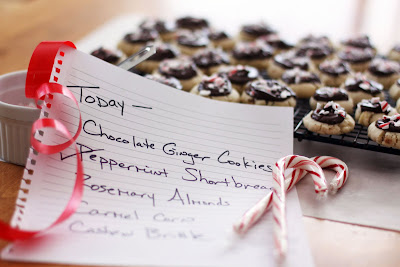 Today —
Chocolate Ginger Cookies
Peppermint Shortbread
Rosemary Almonds
Carmel Corn
Cashew Brittle